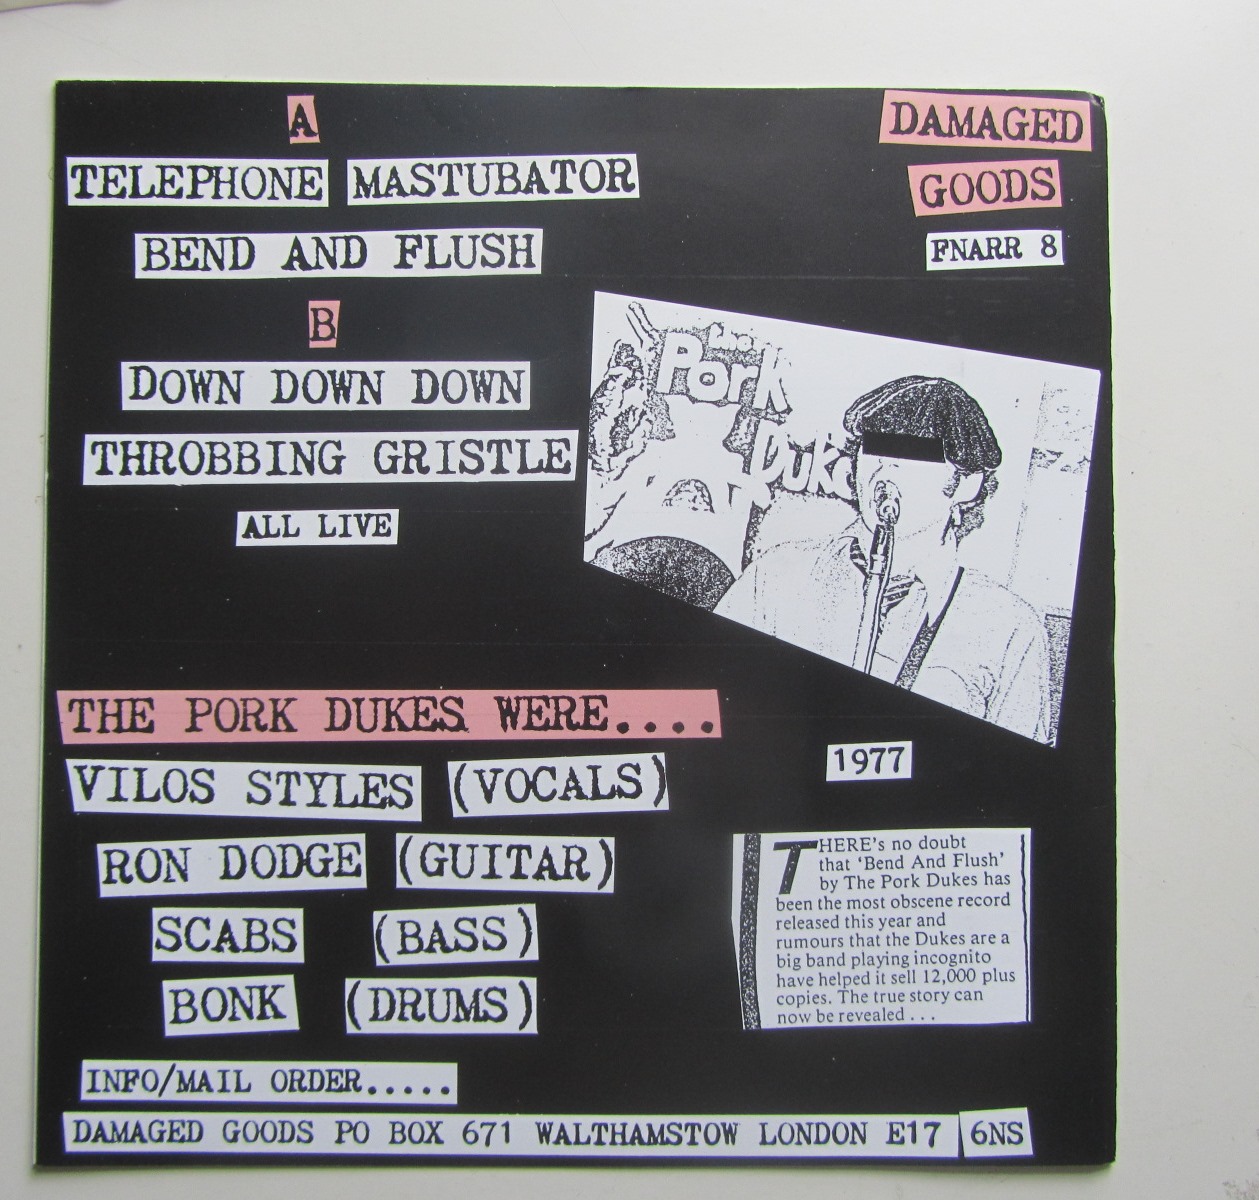 A
TELEPHONE MASTUBATOR
BEND AND FLUSH
B
DOWN DOWN DOWN
THROBBING GRISTLE
ALL LIVE
DAMAGED
GOODS
FNARR 8
the
Pork
Duke
THE PORK DUKES WERE....
VILOS STYLES (VOCALS)
RON DODGE (GUITAR)
SCABS (BASS)
BONK (DRUMS)
1977
THERE's no doubt
that 'Bend And Flush'
by The Pork Dukes has
been the most obscene record
released this year and
rumours that the Dukes are a
big band playing incognito
have helped it sell 12,000 plus
copies. The true story can
now be revealed . . .
INFO/MAIL ORDER.....
DAMAGED GOODS PO BOX 671 WALTHAMSTOW LONDON E17 6NS